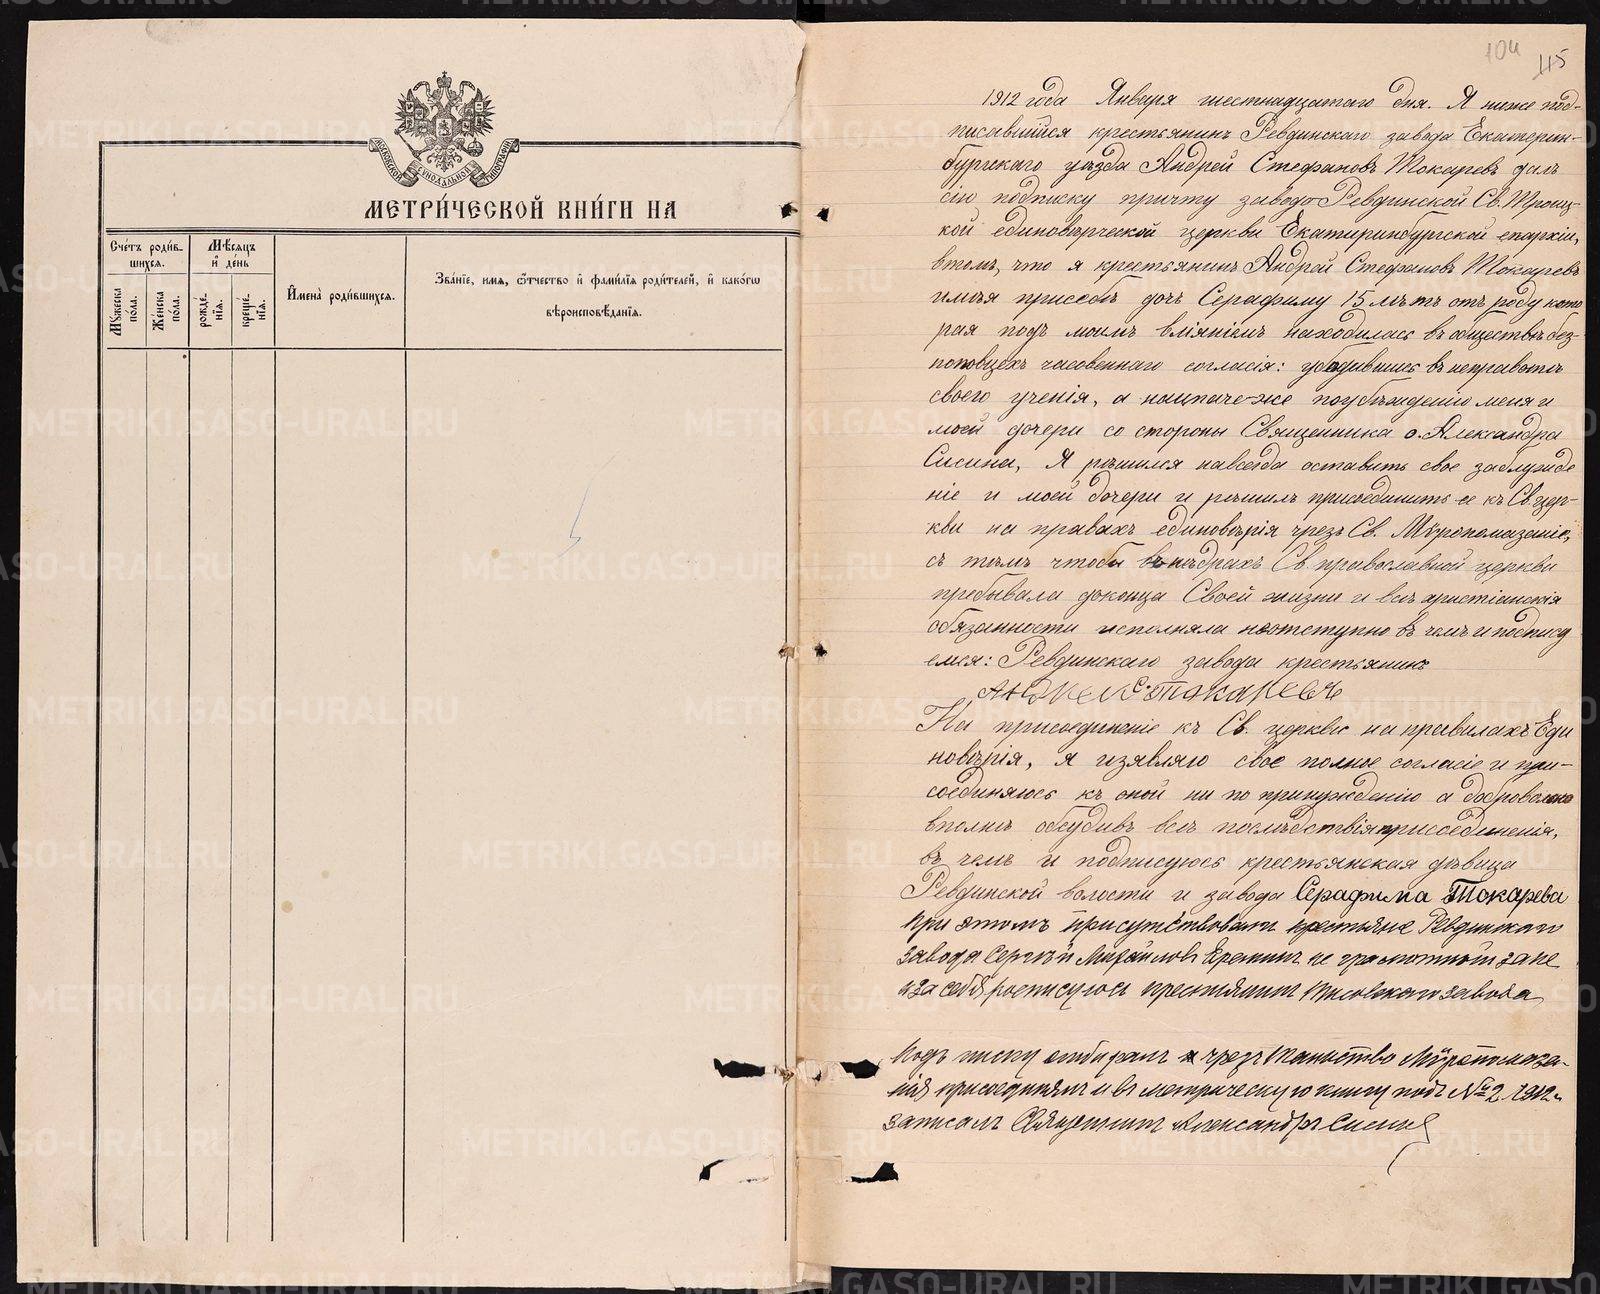 МОСКОВСКОЙ СѴНОДАЛЬНОЙ ТИПОГРАФІИ
МЕТРИ́ЧЕСКОЙ КНИ́ГИ НА
Сче́тъ роди́в-
шихся.
Мѣ́сяцъ
и҆ де́нь
Мꙋ́жеска по́ла.
Же́нска по́ла.
рожде́нїѧ.
креще́нїѧ.
И҆мена̀ роди́вшихся.
Зва́нїе, имѧ, ѻ҆́тчество и҆ фами́лїѧ роди́телей, и҆ како́гѡ
вѣроисповѣ́данїѧ.
104
115
1912 года Января шестнадцатаго дня. Я ниже под-
писавшійся крестьянинъ Ревдинскаго завода Екатерин-
бургскаго уѣзда Андрей Стефановъ Токаревъ далъ
сію подписку причту заводо-Ревдинской Св. Троиц-
кой единовѣрческой церкви Екатеринбургской епархіи,
втомъ, что я крестьянинъ Андрей Стефановъ Токаревъ
имѣя присебѣ дочь Серафиму 15 лѣтъ отъ роду кото
рая подъ моимъ вліяніемъ находилась въ обществѣ без-
поповцехъ часовеннаго согласія: убѣдившись въ неправотѣ
своего ученія, а наипаче-же поубѣжденію меня и
моей дочери со стороны Священника о. Александра
Сисина, Я рѣшился навсегда оставить свое заблужде
ніе и моей дочери и рѣшилъ присоединить ее къ Св. цер-
кви на правахъ единовѣрія чрезъ Св. Мѵропомазаніе,
съ тѣмъ чтобы въ нѣдрахъ Св. православной церкви
пребывала доконца Своей жизни и всѣ христіанскія
обязанности исполняла неотступно въ чемъ и подпису
емся: Ревдинскаго завода крестьянинъ
Андрей С. Токаревъ
На присоединеніе къ Св. церкви на правилахъ Еди
новѣрія, я изявляю свое полное согласіе и при-
соединяюсь къ оной ни по принужденію а добровольно
вполнѣ обсудивъ всѣ послѣдствія присоединенія,
въ чемъ и подписуюсь крестьянская дѣвица
Ревдинской волости и завода Серафима Токарева
При этомъ присутствовали крестьяне Ревдинскаго
завода Сергѣй Михайловъ Еремин не грамотной за не
и за себя росписуюсь крестьянин завода
Подъ писку отбирал и чрезъ Таинство Мѵропомаза-
нія присоединял и въ метрическую книгу подъ № 2. 1912 г.
записалъ Священник Александръ Сисинъ
METRIKI.GASO-URAL.RU